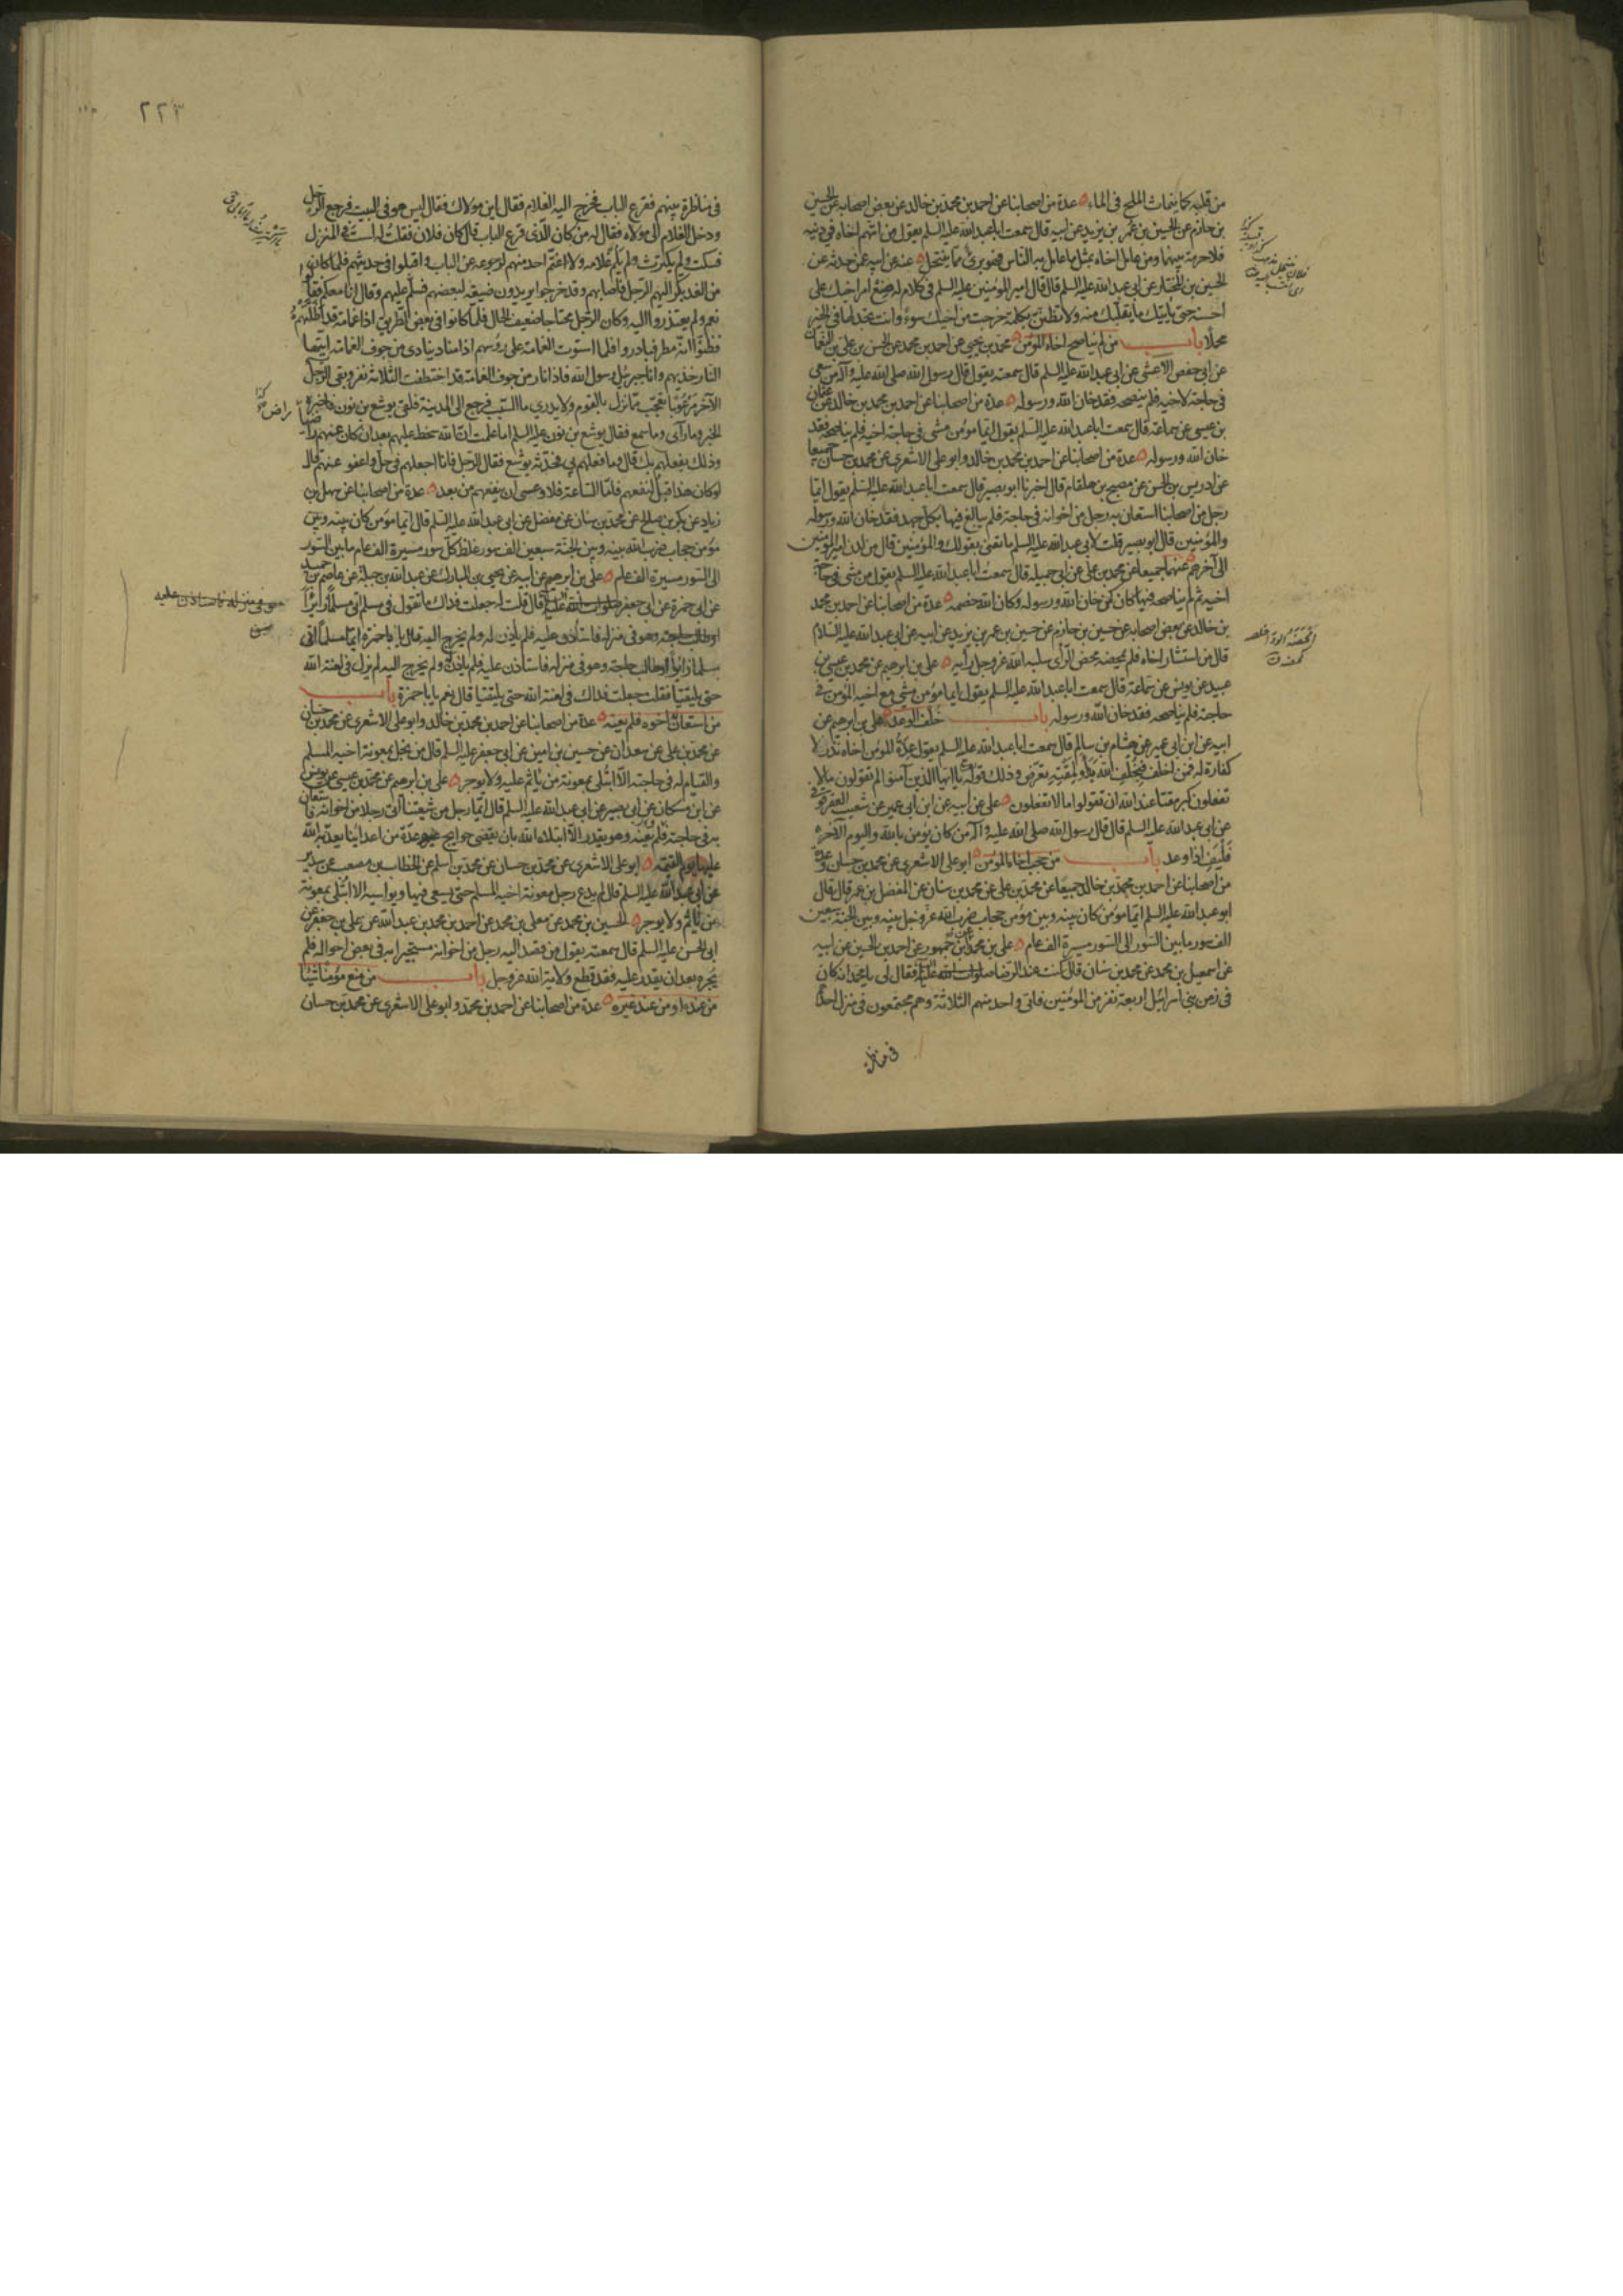 من قلبه كما ينماث الملح في الماء عدة من اصحابنا عن احمد بن محمد بن خالد عن بعض اصحابه عن الحسين
بن حازم عن الحسين بن عمر بن يزيد عن ابيه قال سمعت ابا عبد الله عليه السلم يقول من اتهم اخاه في دينه
فلا حرمة بينهما ومن عامل اخاه بمثل ما عامل به الناس فهو برئ مما ينتحل عنه عن ابيه عمن حدثه عن
الحسين بن المختار عن ابي عبد الله عليه السلم قال قال امير المؤمنين عليه السلم في كلام له ضع امر اخيك على
احسنه حتى ياتيك ما يغلبك منه ولا تظنن بكلمة خرجت من اخيك سوءً وانت تجد لها في الخير
محملا باب من لم يناصح اخاه المؤمن محمد بن يحيى عن احمد بن محمد عن الحسن بن علي بن النعمان
عن ابي حفص الاعشى عن ابي عبد الله عليه السلم قال سمعته يقول قال رسول الله صلى الله عليه وآله من سعى
في حاجة لاخيه فلم ينصحه فقد خان الله ورسوله عدة من اصحابنا عن احمد بن محمد بن خالد عن عثمان
بن عيسى عن سماعة قال سمعت ابا عبد الله عليه السلم يقول ايما مؤمن مشى في حاجة اخيه فلم يناصحه فقد
خان الله ورسوله عدة من اصحابنا عن احمد بن محمد بن خالد وابو علي الاشعري عن محمد بن حسان جميعا
عن ادريس بن الحسن عن مصبح بن هلقام قال اخبرنا ابو بصير قال سمعت ابا عبد الله عليه السلم يقول ايما
رجل من اصحابنا استعان به رجل من اخوانه في حاجة فلم يبالغ فيها بكل جهد فقد خان الله ورسوله
والمؤمنين قال ابو بصير قلت لابي عبد الله عليه السلم ما تعنى بقولك والمؤمنين قال من لدن امير المؤمنين
الى آخرهم عنهما جميعا عن محمد بن علي عن ابي جميله قال سمعت ابا عبد الله عليه السلم يقول من مشى في حاجة
اخيه ثم لم يناصحه فيها كان كمن خان الله ورسوله وكان الله خصمه عدة من اصحابنا عن احمد بن محمد
بن خالد عن بعض اصحابه عن حسين بن حازم عن حسين بن عمر بن يزيد عن ابيه عن ابي عبد الله عليه السلام
قال من استشار اخاه فلم يمحضه محض الرأى سلبه الله عز وجل رأيه علي بن ابرهيم عن محمد بن عيسى بن
عبيد عن يونس عن سماعة قال سمعت ابا عبد الله عليه السلم يقول ايما مؤمن مشى مع اخيه المؤمن في
حاجة فلم يناصحه فقد خان الله ورسوله باب خلف الوعد علي بن ابرهيم عن
ابيه عن ابن ابي عمير عن هشام بن سالم قال سمعت ابا عبد الله عليه السلم يقول عدة المؤمن اخاه نذر لا
كفارة له فمن اخلف فبخلف الله بدأ ولمقته تعرض وذلك قوله يا ايها الذين آمنوا لم تقولون ما لا
تفعلون كبر مقتا عند الله ان تقولوا ما لا تفعلون علي عن ابيه عن ابن ابي عمير عن شعيب العقرقوفي
عن ابي عبد الله عليه السلم قال قال رسول الله صلى الله عليه وآله من كان يؤمن بالله واليوم الآخر
فليف اذا وعد باب من حجب اخاه المؤمن ابو علي الاشعري عن محمد بن حسان وعدة
من اصحابنا عن احمد بن محمد بن خالد جميعا عن محمد بن علي عن محمد بن سنان عن المفضل بن عمر قال قال
ابو عبد الله عليه السلم ايما مؤمن كان بينه وبين مؤمن حجاب ضرب الله عز وجل بينه وبين الجنة سبعين
الف سور ما بين السور الى السور مسيرة الف عام علي بن محمد عن ابن جمهور عن احمد بن الحسين عن ابيه
عن اسمعيل بن محمد عن محمد بن سنان قال كنت عند الرضا صلوات الله عليه فقال لي يا محمد انه كان
في زمن بني اسرائيل اربعة نفر من المؤمنين فاتى واحد منهم الثلاثة وهم مجتمعون في منزل احدهم
في مناظرة
٢٢٣
في مناظرة بينهم فقرع الباب فخرج اليه الغلام فقال اين مولاك فقال ليس هو في البيت فرجع الرجل
ودخل الغلام الى مولاه فقال له من كان الذي قرع الباب قال كان فلان فقلت له لست في المنزل
فسكت ولم يكترث ولم يلم غلامه ولا اغتم احد منهم لرجوعه عن الباب واقبلوا في حديثهم فلما كان
من الغد بكر اليهم الرجل فاصابهم وقد خرجوا يريدون ضيعة لبعضهم فسلم عليهم وقال انا معكم فقالوا
نعم ولم يعتذروا اليه وكان الرجل محتاجا ضعيف الحال فلما كانوا في بعض الطريق اذا غمامة قد اظلتهم
فظنوا انه مطر فبادروا فلما استوت الغمامة على رؤسهم اذا مناد ينادى من جوف الغمامة ايتها
النار خذيهم وانا جبرئيل رسول الله فاذا نار من جوف الغمامة قد اختطفت الثلاثة نفر وبقى الرجل
الآخر مرعوبا تعجب مما نزل بالقوم ولا يدري ما السبب فرجع الى المدينة فلقى يوشع بن نون فاخبره
الخبر وما رآى وما سمع فقال يوشع بن نون عليه السلم اما علمت ان الله سخط عليهم بعد ان كان عنهم راضيا
وذلك بفعلهم بك قال وما فعلهم بي فحدثه يوشع فقال الرجل فانا اجعلهم في حل واعفو عنهم قال
لو كان هذا قبل لنفعهم فاما الساعة فلا وعسى ان ينفعهم من بعد عدة من اصحابنا عن سهل بن
زياد عن بكر بن صالح عن محمد بن سنان عن مفضل عن ابي عبد الله عليه السلم قال ايما مؤمن كان بينه وبين
مؤمن حجاب ضرب الله بينه وبين الجنة سبعين الف سور غلظ كل سور مسيرة الف عام ما بين السور
الى السور مسيرة الف عام علي بن ابرهيم عن ابيه عن يحيى بن المبارك عن عبد الله بن جبلة عن عاصم بن حميد
عن ابي حمزة عن ابي جعفر صلوات الله عليه قال قلت له جعلت فداك ما تقول في مسلم اتى مسلما زائرا
او طالب حاجة وهو في منزله فاستأذن عليه فلم ياذن له ولم يخرج اليه قال يا با حمزة ايما مسلم اتى
مسلما زائرا او طالب حاجة وهو في منزله فاستاذن عليه فلم ياذن له ولم يخرج اليه لم يزل في لعنة الله
حتى يلتقيا فقلت جعلت فداك في لعنة الله حتى يلتقيا قال نعم يا با حمزة باب
من استعان به اخوه فلم يعنه عدة من اصحابنا عن احمد بن محمد بن خالد وابو علي الاشعري عن محمد بن حسان
عن محمد بن علي عن سعدان عن حسين بن امين عن ابي جعفر عليه السلم قال من بخل بمعونة اخيه المسلم
والقيام له في حاجته الا ابتلى بمعونة من ياثم عليه ولا يوجر علي بن ابرهيم عن محمد بن عيسى عن يونس
عن ابن مسكان عن ابي بصير عن ابي عبد الله عليه السلم قال ايما رجل من شيعتنا اتى رجلا من اخوانه فاستعان
به في حاجته فلم يعنه وهو يقدر الا ابتلاه الله بان يقضى حوائج عدة من اعدائنا يعذبه الله
عليها يوم القيمة ابو علي الاشعري عن محمد بن حسان عن محمد بن اسلم عن الخطاب بن مصعب عن سدير
عن ابي عبد الله عليه السلم قال لم يدع رجل معونة اخيه المسلم حتى يسعى فيها ويواسيه الا ابتلى بمعونة
من ياثم ولا يوجر الحسين بن محمد عن معلى بن محمد عن احمد بن محمد بن عبد الله عن علي بن جعفر عن
ابي الحسن عليه السلم قال سمعته يقول من قصد اليه رجل من اخوانه مستجيرا به في بعض احواله فلم
يجره بعد ان يقدر عليه فقد قطع ولاية الله عز وجل باب من منع مؤمنا شيئا
من عنده او من عند غيره عدة من اصحابنا عن احمد بن محمد وابو علي الاشعري عن محمد بن حسان
هو في منزله فاستاذن عليه